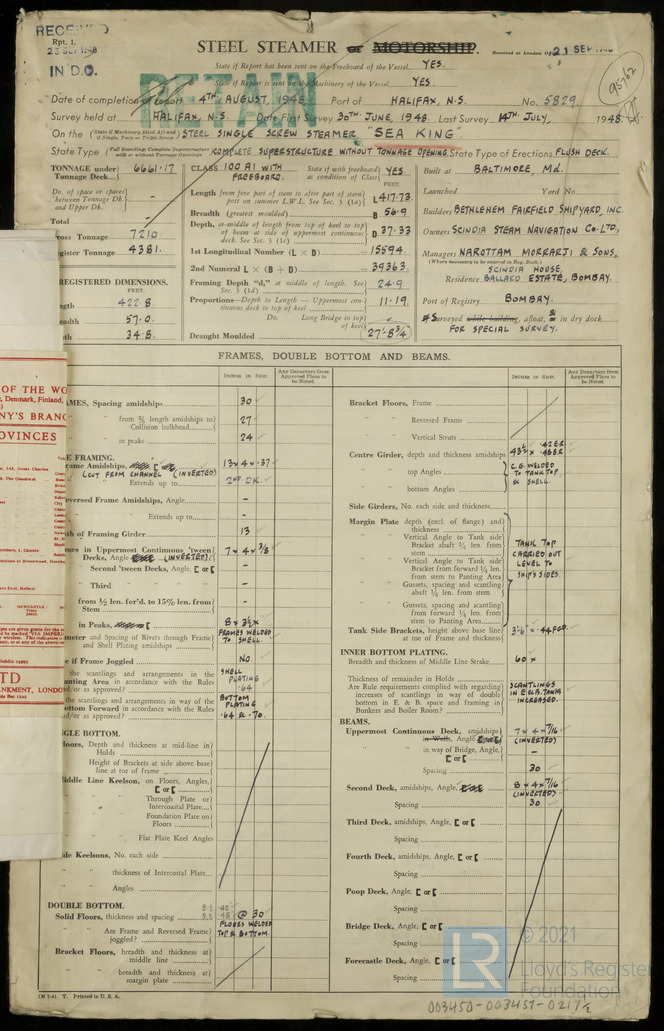 RECEIVED
Rpt. 1.
23 SEP 1948
IN D.O.
RETAIN
STEEL STEAMER or MOTORSHIP.
Received at London Office 21 SEP 1948
State if Report has been sent on the Freeboard of the Vessel YES.
State if Report is sent on the Machinery of the Vessel YES.
95762
Date of completion of report 4TH AUGUST, 1948. Port of HALIFAX, N.S. No. 5829.
Survey held at HALIFAX, N.S. Date First Survey 30TH JUNE, 1948. Last Survey 14TH JULY, 1948.
On the (State if Machinery fitted Aft and if Single, Twin or Triple Screw) STEEL SINGLE SCREW STEAMER "SEA KING"
State Type (Full Scantling, Complete Superstructure with or without Tonnage Openings) COMPLETE SUPERSTRUCTURE WITHOUT TONNAGE OPENING. State Type of Erections FLUSH DECK.
TONNAGE under Tonnage Deck... 6661.17
Do. of space or spaces between Tonnage Dk. and Upper Dk. -
Total -
Gross Tonnage 7210
Register Tonnage 4381.
REGISTERED DIMENSIONS.
FEET.
Length 422.8
Breadth 57.0
Depth 34.8
CLASS 100 A1 WITH FREEBOARD. State if with freeboard as condition of Class YES.
FEET.
Length from fore part of stem to after part of stern post on summer L.W.L. See Sec. 3 (1a) L 417.73
Breadth (greatest moulded) B 56.9
Depth, at middle of length from top of keel to top of beam at side of uppermost continuous deck. See Sec. 3 (1c) D 37.33
1st Longitudinal Number (L × D) 15594.
2nd Numeral L × (B + D) 39363.
Framing Depth "d," at middle of length. See Sec. 3 (1d) 24.9
Proportions—Depth to Length—Uppermost continuous deck to top of keel 11.19
Do. Long Bridge to top of keel
Draught Moulded 27'-8 3/4
Built at BALTIMORE Md.
Launched Yard No.
Builders BETHLEHEM FAIRFIELD SHIPYARD, INC.
Owners SCINDIA STEAM NAVIGATION CO. LTD.,
Managers NAROTTAM MORRARJI & SONS,
(Where necessary to be entered in Reg. Book.)
SCINDIA HOUSE,
Residence BALLARD ESTATE, BOMBAY.
Port of Registry BOMBAY.
Surveyed while building, afloat, & in dry dock
FOR SPECIAL SURVEY.
FRAMES, DOUBLE BOTTOM AND BEAMS.
INCHES IN SHIP.
Any Departure from Approved Plans to be Noted.
FRAMES, Spacing amidships 30
" " from 3/5 length amidships to Collision bulkhead 27
" " in peaks 24
SIDE FRAMING.
Frame Amidships, (CUT FROM CHANNEL (INVERTED) 13 x 4 x .37
" " Extends up to 2ND DK.
Reversed Frame Amidships, Angle -
" " Extends up to -
Depth of Framing Girder 13
Frames in Uppermost Continuous 'tween Decks, Angle (INVERTED) 7 x 4 x 3/8
" Second 'tween Decks, Angle, [ or [ -
" Third " " " -
" from 1/2 len. for'd. to 15% len. from Stem -
" in Peaks, 8 x 3 1/2 x
Diameter and Spacing of Rivets through Frame and Shell Plating amidships FRAMES WELDED TO SHELL.
State if Frame Joggled NO.
the scantlings and arrangements in the Panting Area in accordance with the Rules and/or as approved? SHELL PLATING .64
the scantlings and arrangements in way of the Bottom Forward in accordance with the Rules and/or as approved? BOTTOM PLATING .64 & .70.
SINGLE BOTTOM.
Floors, Depth and thickness at mid-line in Holds
Height of Brackets at side above base line at toe of frame
Middle Line Keelson, on Floors, Angles, [ or [
" " Through Plate or Intercostal Plate
" " Foundation Plate on Floors
" " Flat Plate Keel Angles
Side Keelsons, No. each side
" " thickness of Intercostal Plate
" " Angles
DOUBLE BOTTOM.
Solid Floors, thickness and spacing @ 30
" " Are Frame and Reversed Frame joggled? FLOORS WELDED TOP & BOTTOM.
Bracket Floors, breadth and thickness at middle line
" " breadth and thickness at margin plate
Bracket Floors, Frame
" " Reversed Frame
" " Vertical Struts
Centre Girder, depth and thickness amidships 43 1/2 x .42 E.R. .48 B.R.
" " top Angles
" " bottom Angles
C.G. WELDED TO TANK TOP & SHELL.
Side Girders, No. each side and thickness
Margin Plate depth (excl. of flange) and thickness
" " Vertical Angle to Tank side Bracket abaft 1/4 len. from stem
" " Vertical Angle to Tank side Bracket from forward 1/4 len. from stem to Panting Area
" " Gussets, spacing and scantling abaft 1/4 len. from stem
" " Gussets, spacing and scantling from forward 1/4 len. from stem to Panting Area
TANK TOP CARRIED OUT LEVEL TO SHIP'S SIDES.
Tank Side Brackets, height above base line at toe of Frame and thickness 3'-6" x .44 FCD.
INNER BOTTOM PLATING.
Breadth and thickness of Middle Line Strake 60 x
Thickness of remainder in Holds
Are Rule requirements complied with regarding increases of scantlings in way of double bottom in E. & B. space and framing in Bunkers and Boiler Room? SCANTLINGS IN E & B. TANKS INCREASED.
BEAMS.
Uppermost Continuous Deck, amidships in Wells, Angle 7 x 4 x 7/16 (INVERTED)
" " in way of Bridge, Angle, [ or [ -
Spacing 30
Second Deck, amidships, Angle, 8 x 4 x 7/16 (INVERTED)
Spacing 30
Third Deck, amidships, Angle, [ or [
Spacing
Fourth Deck, amidships, Angle, [ or [
Spacing
Poop Deck, Angle, [ or [
Spacing
Bridge Deck, Angle, [ or [
Spacing
Forecastle Deck, Angle, [ or [
Spacing
1M 7-41 T. Printed in U.S.A.
OF THE WO
Denmark, Finland,
NY'S BRANC
OVINCES
TD
NKMENT, LONDO
LR
© 2021
Lloyd's Register
Foundation
003450-003457-0217 1/2